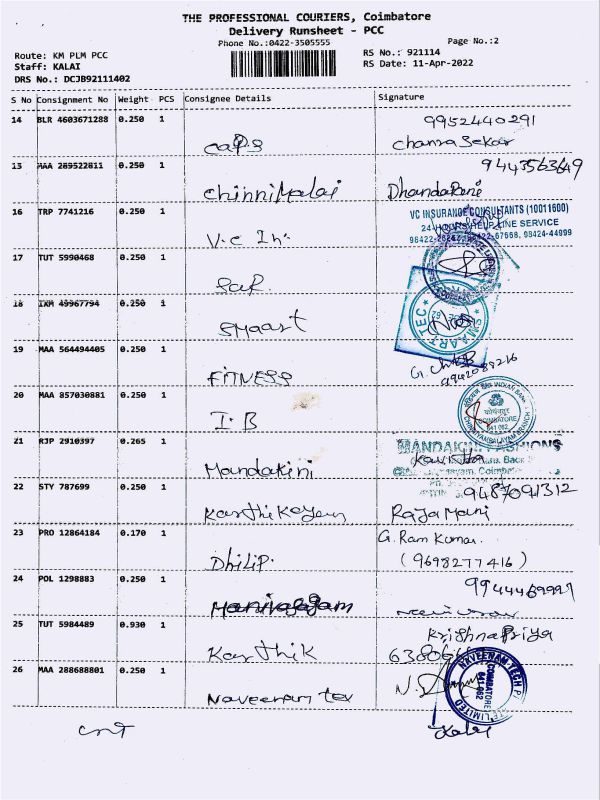 THE PROFESSIONAL COURIERS, Coimbatore
Delivery Runsheet - PCC
Phone No.:0422-3505555
Page No.:2
Route: KM PLM PCC
RS No.: 921114
Staff: KALAI
RS Date: 11-Apr-2022
DRS No.: DCJB92111402
S No Consignment No Weight PCS Consignee Details Signature
14 BLR 4603671288 0.250 1
9952440291
caps
Chandrasekar
15 MAA 289522811 0.250 1
9443563649
Chinnimalai Dhandapani
16 TRP 7741216 0.250 1
VC INSURANCE CONSULTANTS (10011600)
24 HOURS HELP LINE SERVICE
98424-44999
V.C In.
17 TUT 5990468 0.250 1
18 IXM 49967794 0.250 1
SMAARTEC
Smaart
19 MAA 564494405 0.250 1
FITNESS
20 MAA 857030881 0.250 1
INDIAN BANK
COIMBATORE
641 062
I.B
21 RJP 2910397 0.265 1
MANDAKINI FASHIONS
Kavitha
Mandakini
22 STY 787699 0.250 1
9487091312
Karthikeyan Rajamani
23 PRO 12864184 0.170 1
G. Ram Kumar
Dhilip. (9698277416)
24 POL 1298883 0.250 1
25 TUT 5984489 0.930 1
Krishnapriya
Karthik
26 MAA 288688801 0.250 1
NAVEENAM TECH
LIMITED
COIMBATORE
641 062
Naveenam tex
Kalai